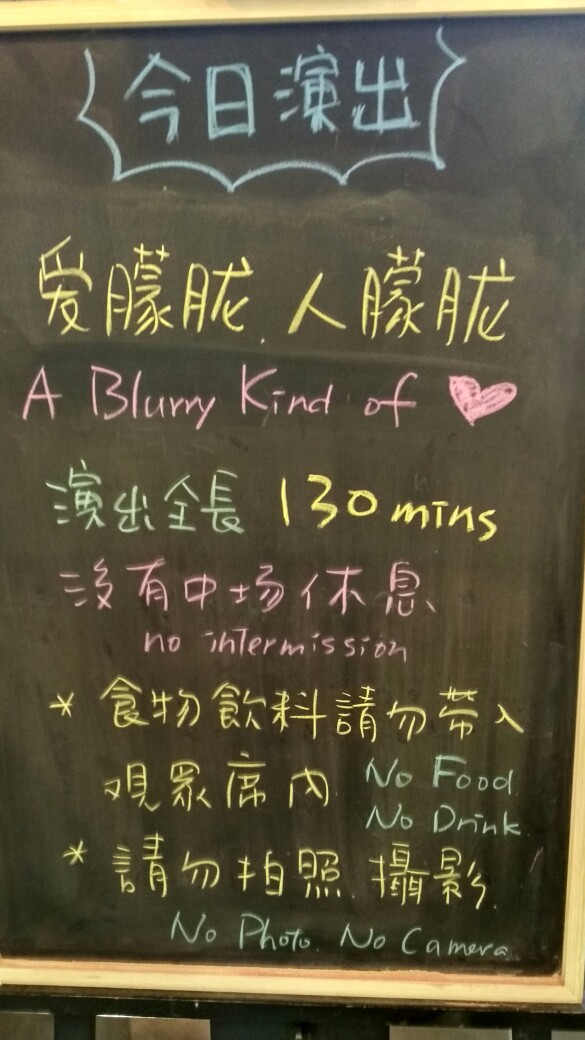 今日演出
爱朦胧.人朦胧
A Blurry Kind of ♥
演出全長 130 mins
没有中场休息、
no intermission
* 食物飲料請勿帶入
观眾席内 No Food.
No Drink.
* 請勿拍照.攝影.
No Photo. No Camera